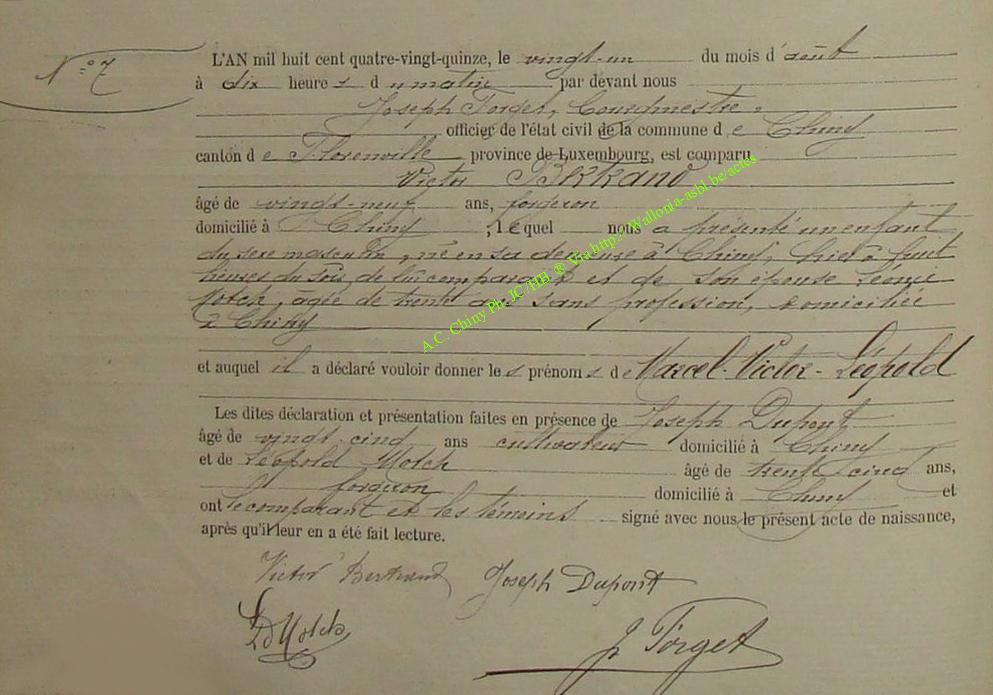 N° 7
L'AN mil huit cent quatre-vingt-quinze, le vingt-un du mois d'août
à dix heures du matin par devant nous
Joseph Forget, Bourgmestre,
officier de l'état civil de la commune de Chiny
canton de Florenville province de Luxembourg, est comparu
Victor Bertrand
âgé de vingt-neuf ans, forgeron
domicilié à Chiny, lequel nous a présenté un enfant
du sexe masculin, né en sa demeure à Chiny, hier à huit
heures du soir, de lui comparant et de son épouse Léonie
Motch, agée de trente ans sans profession, domiciliée
à Chiny
et auquel il a déclaré vouloir donner les prénoms de Marcel-Victor-Léopold
Les dites déclaration et présentation faites en présence de Joseph Dupont
âgé de vingt cinq ans cultivateur domicilié à Chiny
et de Léopold Motch âgé de trente cinq ans,
forgeron domicilié à Chiny et
ont le comparant et les témoins signé avec nous le présent acte de naissance,
après qu'il leur en a été fait lecture.
Victor Bertrand Joseph Dupont
Ld Motch J Forget
A.C. Chiny Ph. JC/HH ® Via http://Wallonia-asbl.be/actes